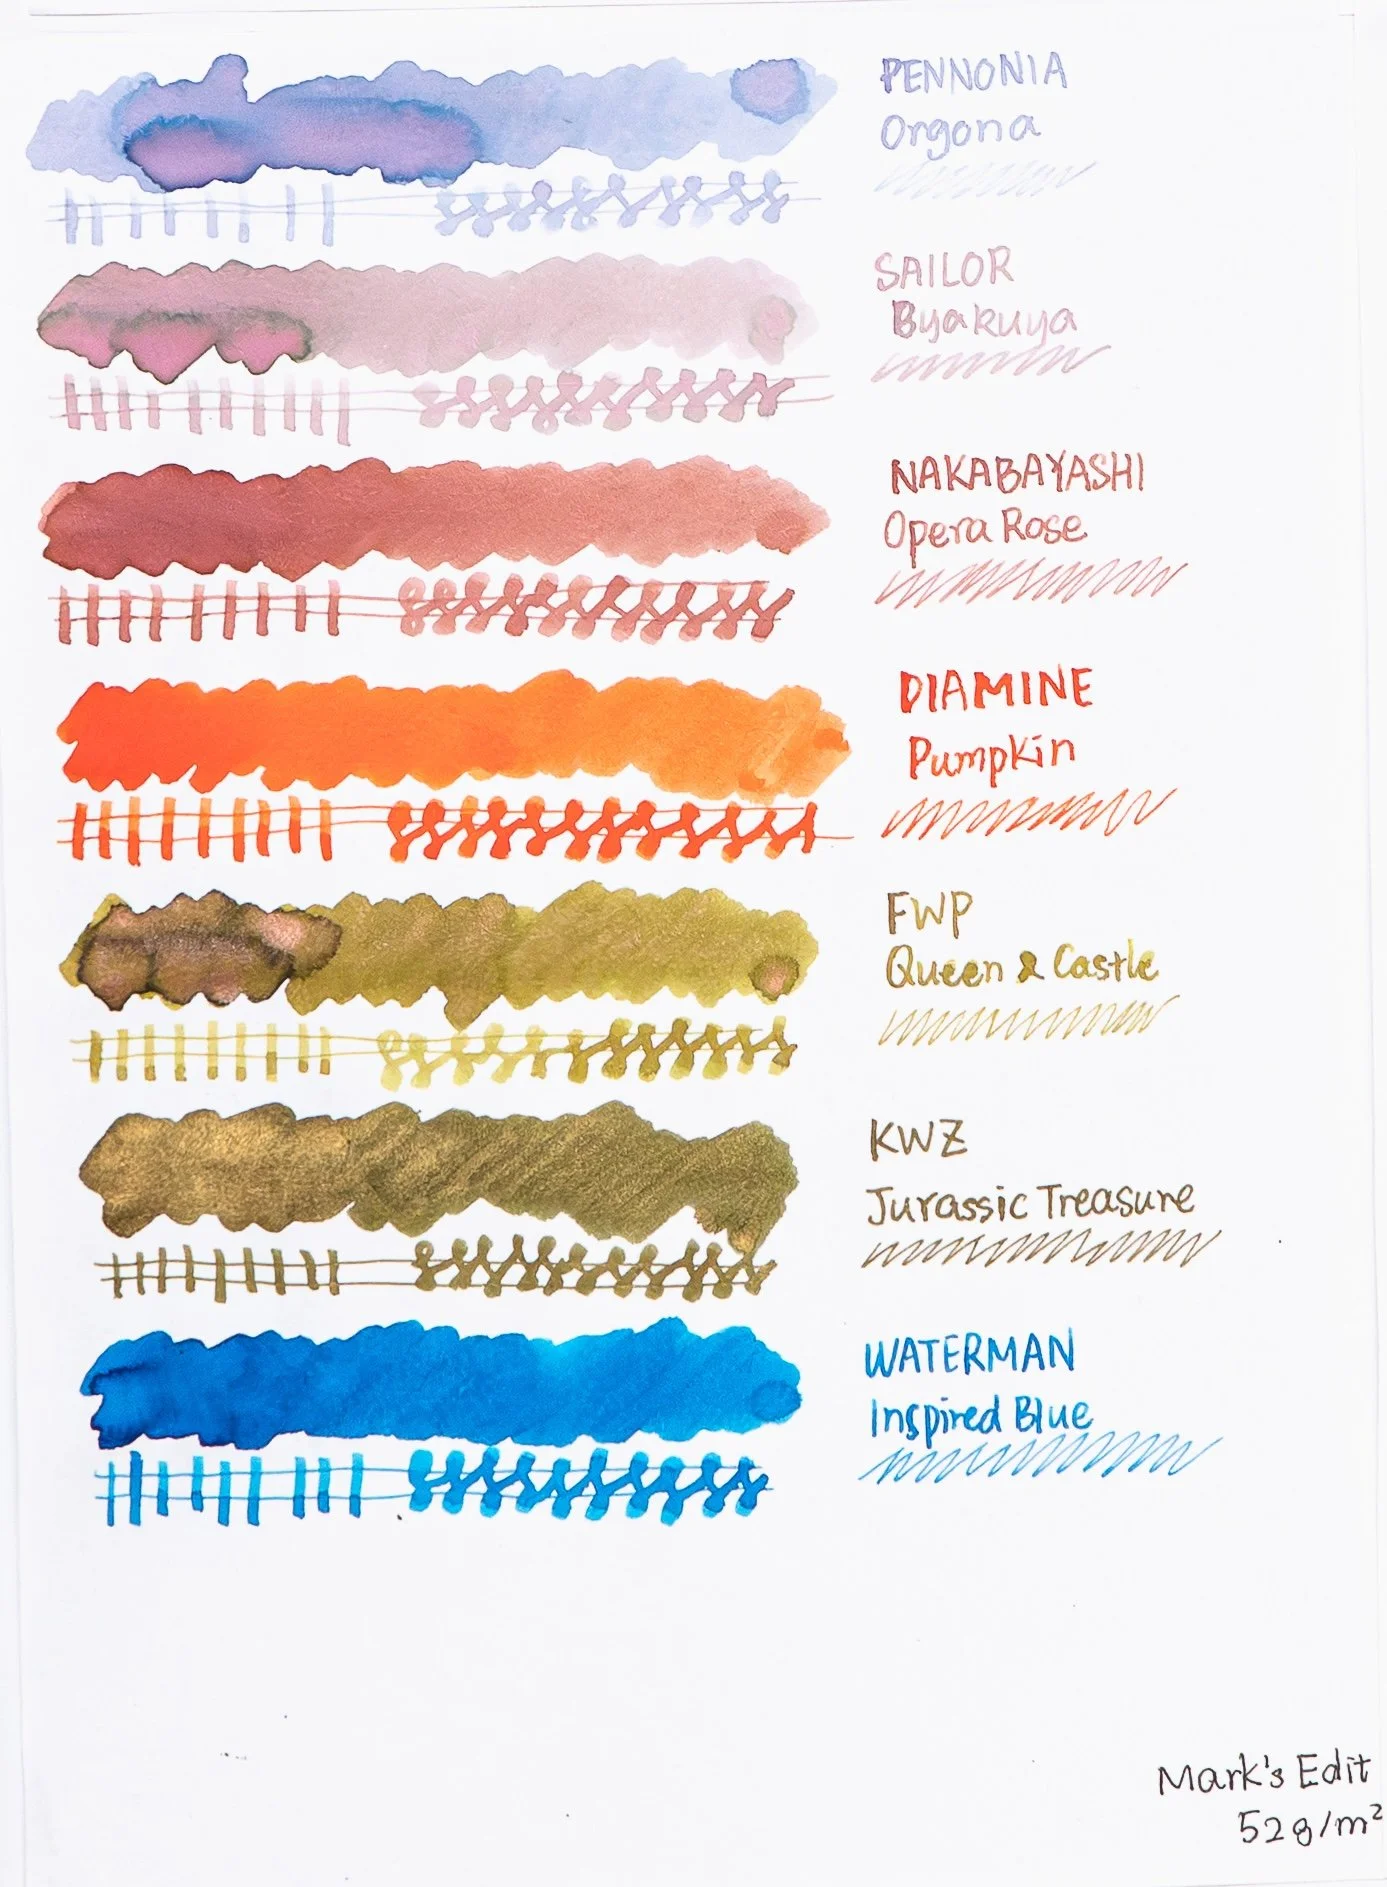 PENNONIA
Orgona
SAILOR
Byakuya
NAKABAYASHI
Opera Rose
DIAMINE
Pumpkin
FWP
Queen & Castle
KWZ
Jurassic Treasure
WATERMAN
Inspired Blue
Mark's Edit
52g/m²